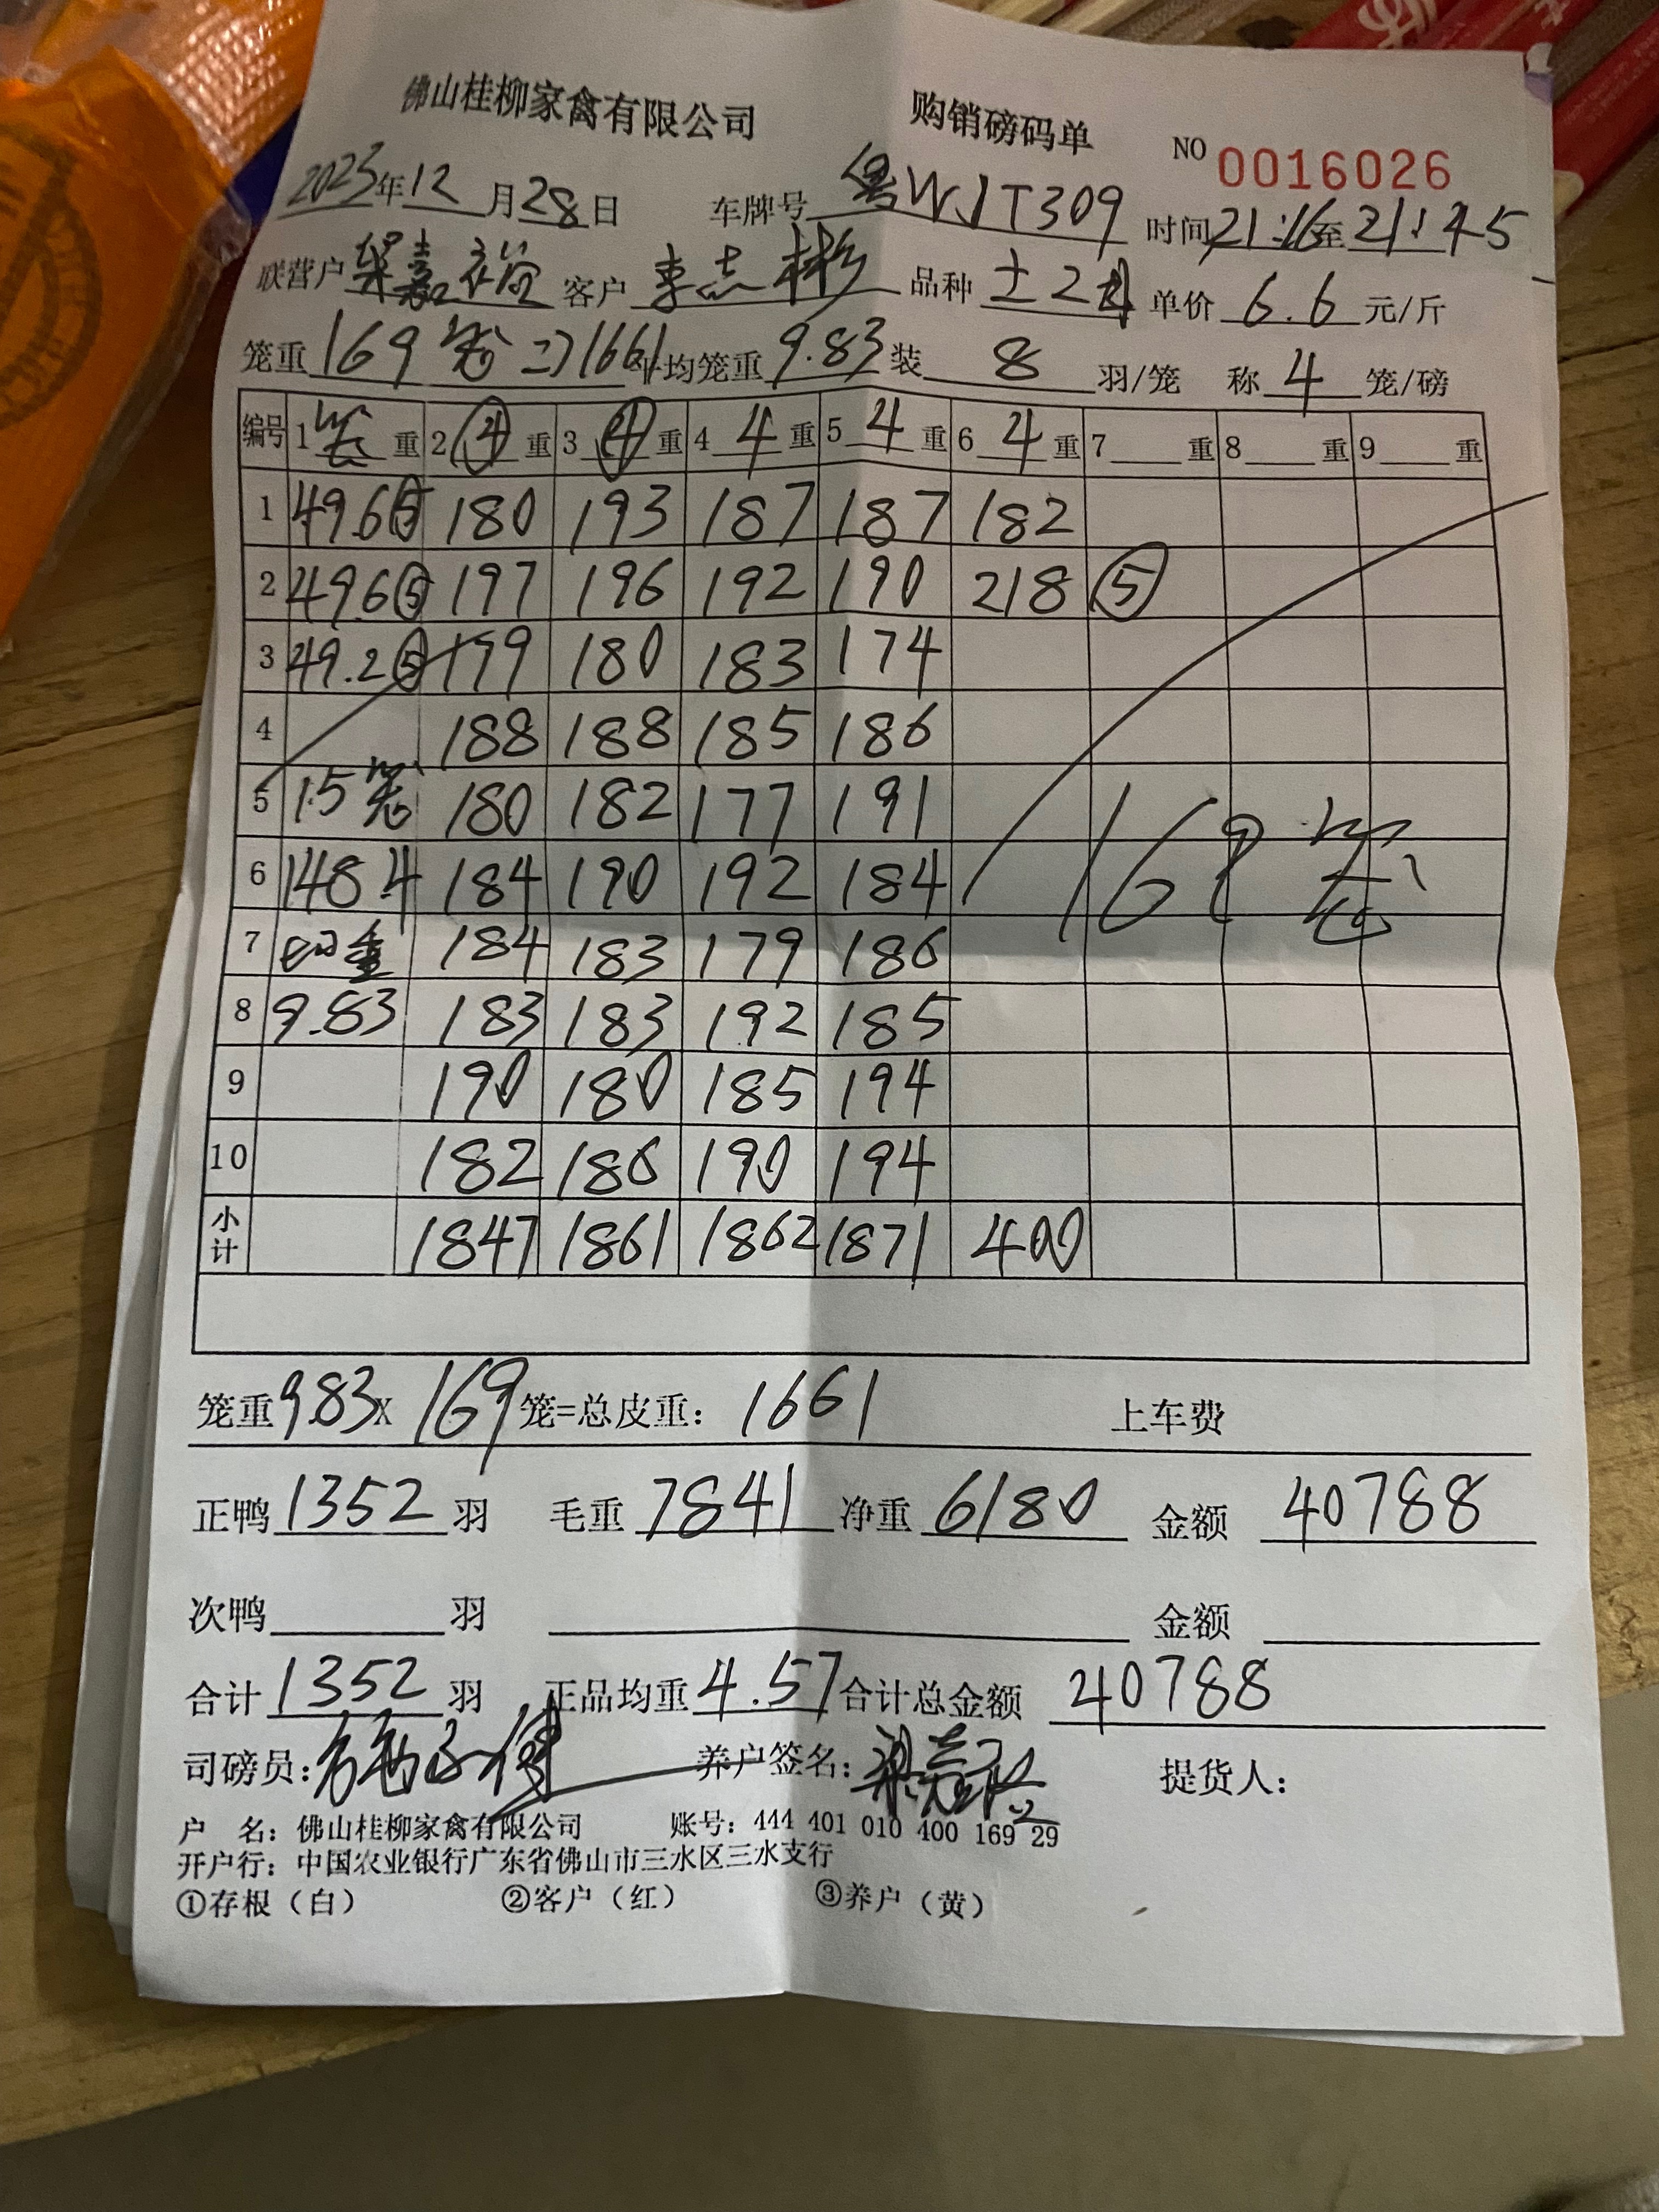 佛山桂柳家禽有限公司 购销磅码单 NO 0016026
2023年12月28日 车牌号 粤WJT309 时间21:16至21:45
联营户 梁嘉裕 客户 李志彬 品种 土2 单价 6.6 元/斤
笼重 169笼=>1661 平均笼重 9.83 装 8 羽/笼 称 4 笼/磅
编号 1 笼 重 2 ④ 重 3 ④ 重 4 4 重 5 4 重 6 4 重 7 重 8 重 9 重
1 49.6⑤ 180 193 187 187 182
2 49.6⑤ 197 196 192 190 218 ⑤
3 49.2⑤ 179 180 183 174
4 188 188 185 186
5 15笼 180 182 177 191
6 148.4 184 190 192 184 169笼
7 均重 184 183 179 186
8 9.83 183 183 192 185
9 190 180 185 194
10 182 186 190 194
小计 1847 1861 1862 1871 400
笼重 9.83 X 169 笼=总皮重： 1661 上车费
正鸭 1352 羽 毛重 7841 净重 6180 金额 40788
次鸭 羽 金额
合计 1352 羽 正品均重 4.57 合计总金额 40788
司磅员： 养户签名：梁嘉裕 提货人：
户 名：佛山桂柳家禽有限公司 账号：444 401 010 400 169 29
开户行：中国农业银行广东省佛山市三水区三水支行
①存根（白） ②客户（红） ③养户（黄）